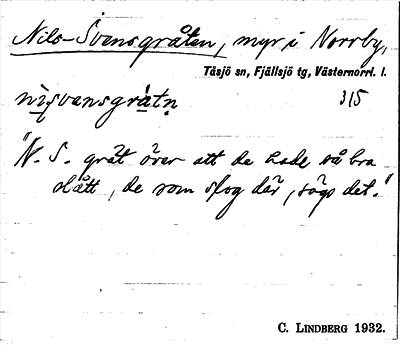 Nils-Svensgråten, myr i Norrby,
Tåsjö sn, Fjällsjö tg, Västernorrl. l.
nìlsvensgrátn 3/5
"N. S. grät över att de hade så bra
slått, de som slog där, sägs det."
C. LINDBERG 1932.